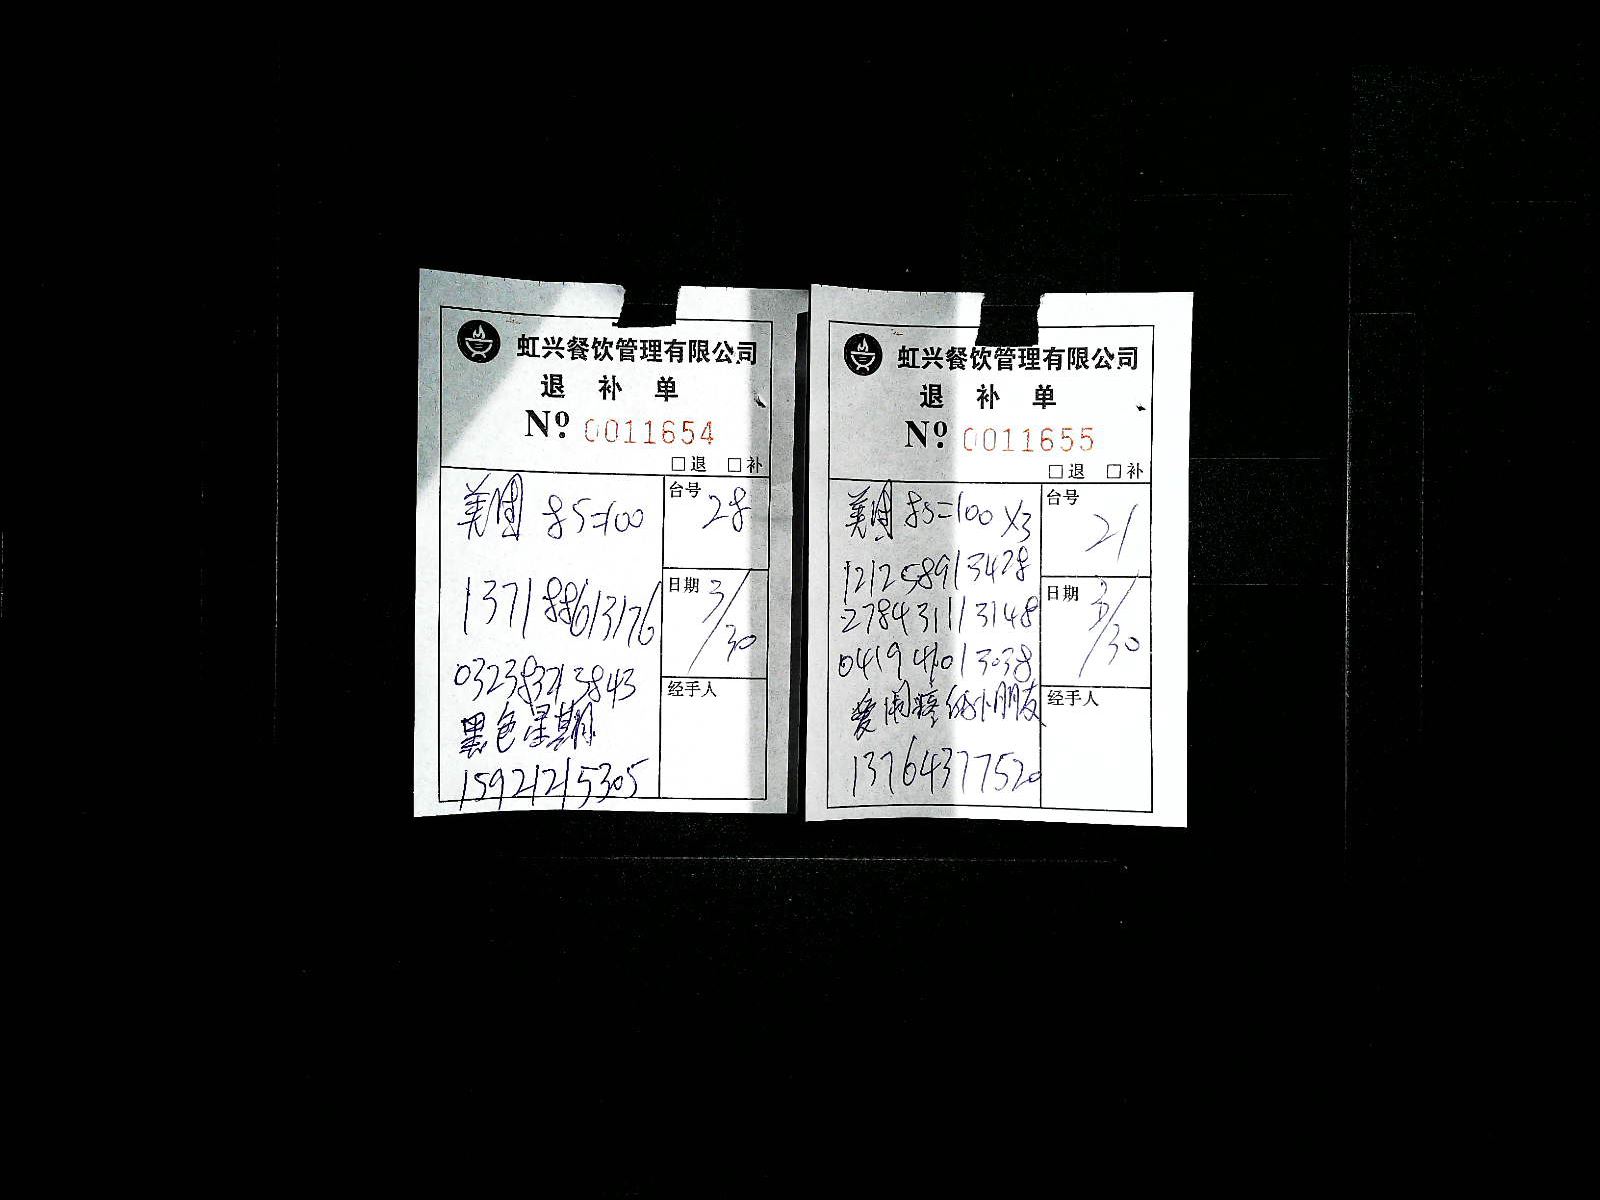 虹兴餐饮管理有限公司
退补单
Nº 0011654
□退 □补
美团 85=100
台号 28
137188613176
日期 3/30
032383213843
黑色星期
15921215305
经手人
虹兴餐饮管理有限公司
退补单
Nº 0011655
□退 □补
美团 85=100 X3
台号 21
121258913428
278431113148
日期 3/30
0419 013038
爱 小朋友
13764377520
经手人